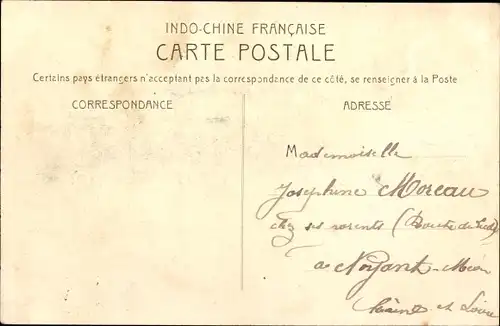 INDO-CHINE FRANÇAISE
CARTE POSTALE
Certains pays étrangers n'acceptant pas la correspondance de ce côté, se renseigner à la Poste
CORRESPONDANCE
ADRESSE
Mademoiselle
Joséphine Moreau
chez ses parents (Route du
à Noyant-Méon
Maine et Loire